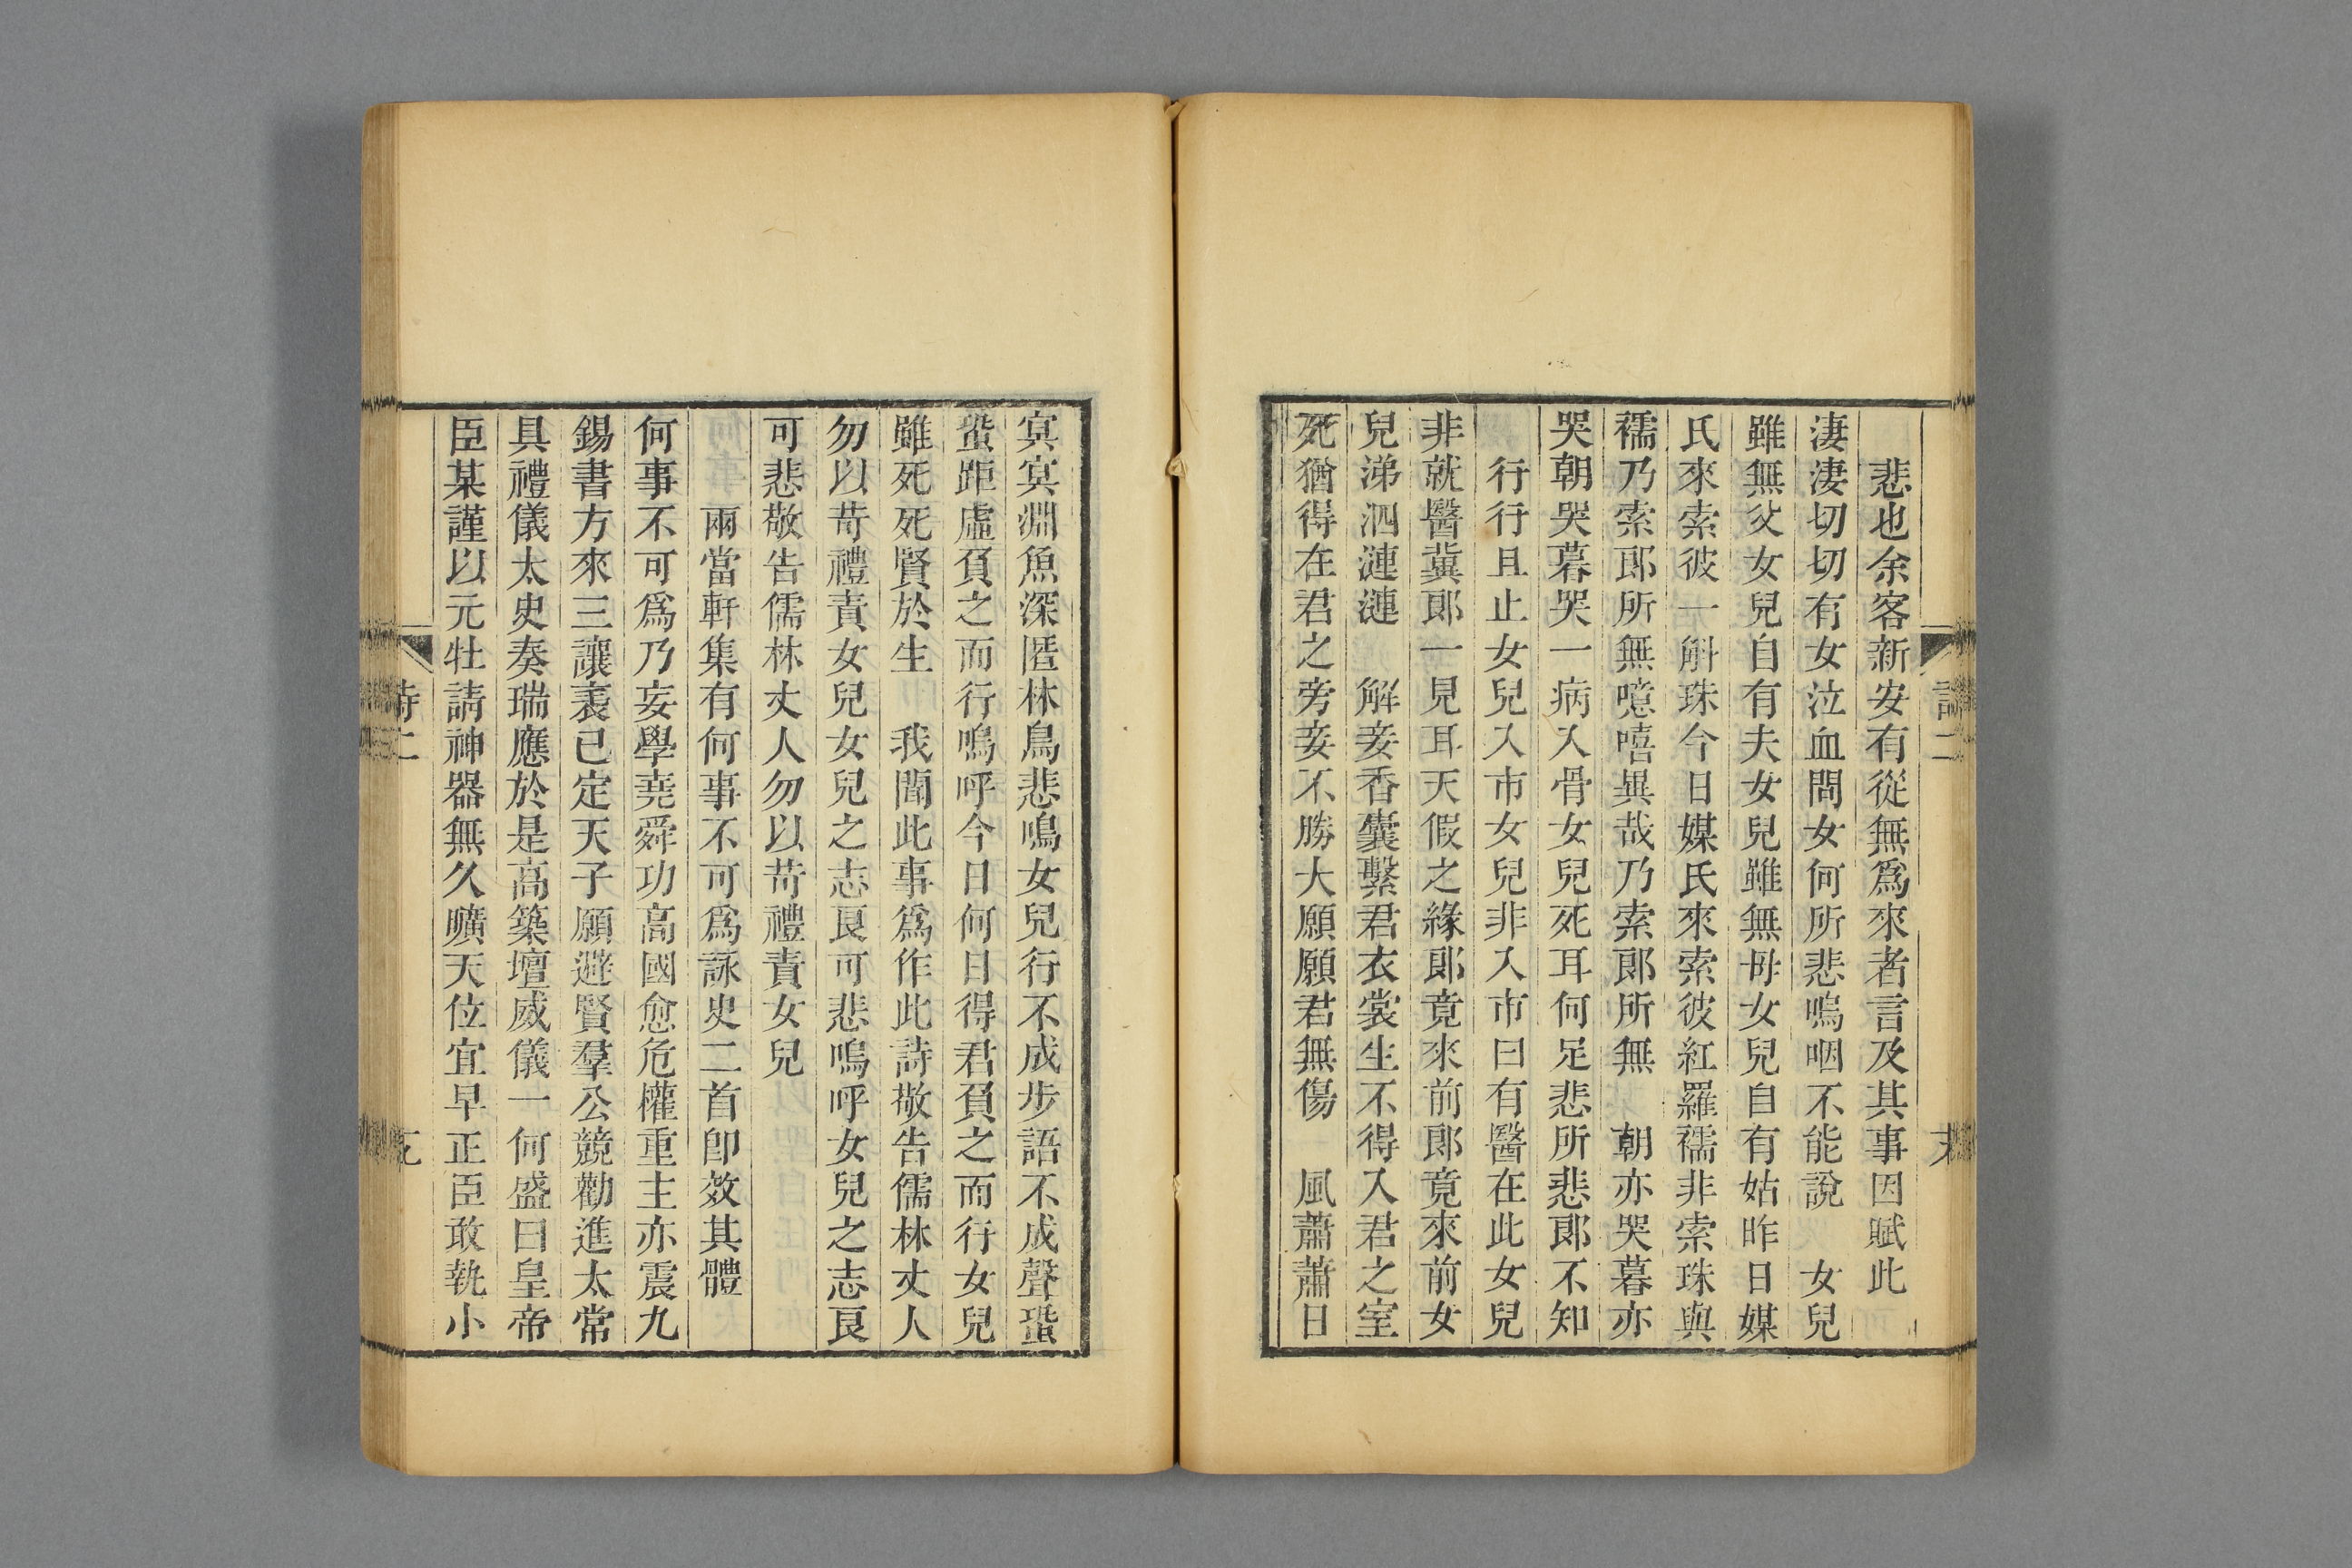 悲也余客新安有從無爲來者言及其事因賦此
淒淒切切有女泣血問女何所悲嗚咽不能說　女兒
雖無父女兒自有夫女兒雖無母女兒自有姑昨日媒
氏來索彼一斛珠今日媒氏來索彼紅羅襦非索珠與
襦乃索郎所無噫嘻異哉乃索郎所無　朝亦哭暮亦
哭朝哭暮哭一病入骨女兒死耳何足悲所悲郎不知
行行且止女兒入市女兒非入市曰有醫在此女兒
非就醫冀郎一見耳天假之緣郎竟來前郎竟來前女
兒涕泗漣漣　解妾香囊繫君衣裳生不得入君之室
死猶得在君之旁妾不勝大願願君無傷　風蕭蕭日
冥冥淵魚深匿林鳥悲鳴女兒行不成步語不成聲蛩
蛩距虛負之而行嗚呼今日何日得君負之而行女兒
雖死死賢於生　我聞此事爲作此詩敬告儒林丈人
勿以苛禮責女兒女兒之志良可悲嗚呼女兒之志良
可悲敬告儒林丈人勿以苛禮責女兒
兩當軒集有何事不可爲詠史二首卽效其體
何事不可爲乃妄學堯舜功高國愈危權重主亦震九
錫書方來三讓表已定天子願避賢羣公競勸進太常
具禮儀太史奏瑞應於是高築壇威儀一何盛曰皇帝
臣某謹以元牡請神器無久曠天位宜早正臣敢執小
詩二